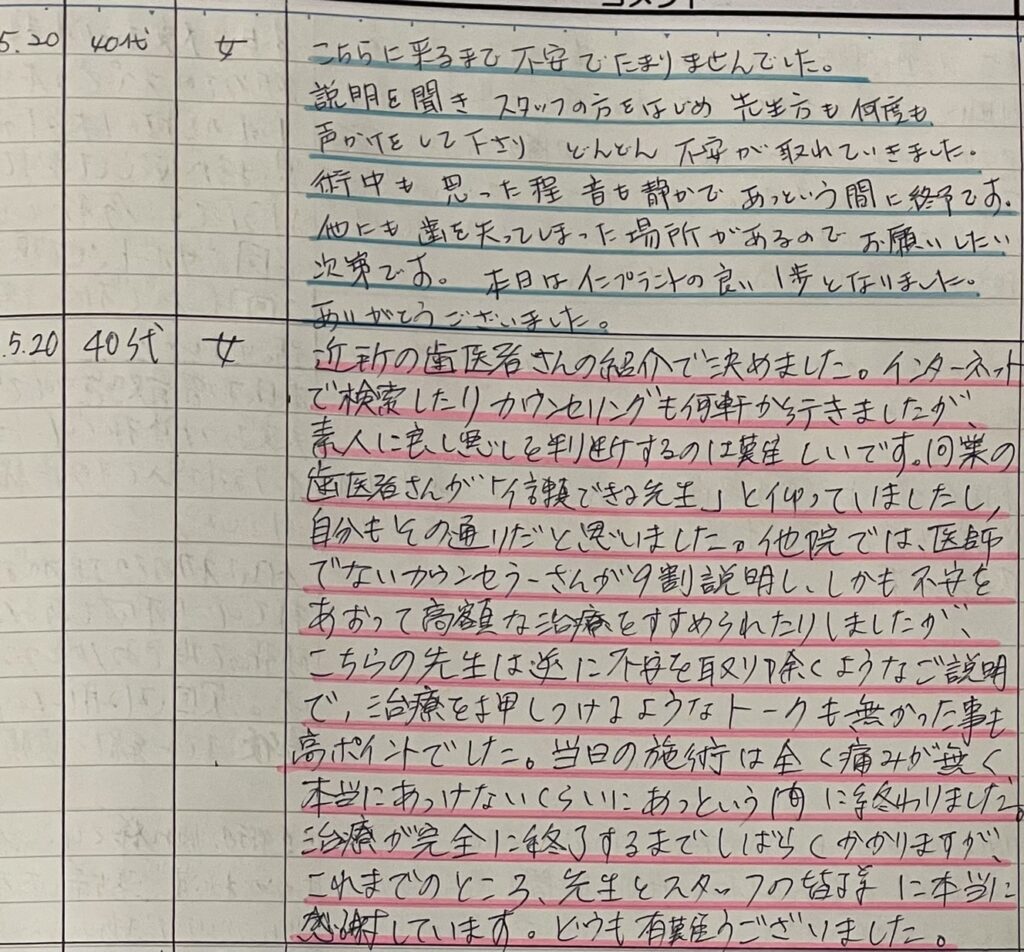 コメント
5.20 40代 女 こちらに来るまで不安でたまりませんでした。
説明を聞き スタッフの方をはじめ 先生方も 何度も
声かけをして下さり どんどん 不安が取れていきました。
術中も 思った程 音も静かで あっという間に終了です。
他にも歯を失ってしまった場所があるので お願いしたい
次第です。 本日はインプラントの良い1歩となりました。
ありがとうございました。
.5.20 40代 女 近所の歯医者さんの紹介で決めました。インターネット
で検索したりカウンセリングも何軒か行きましたが、
素人に良し悪しを判断するのは難しいです。同業の
歯医者さんが「信頼できる先生」と仰っていましたし、
自分もその通りだと思いました。他院では、医師
でないカウンセラーさんが9割説明し、しかも不安を
あおって高額な治療をすすめられたりしましたが、
こちらの先生は逆に不安を取り除くようなご説明
で、治療を押しつけるようなトークも無かった事も
高ポイントでした。当日の施術は全く痛みが無く
本当にあっけないくらいにあっという間に終わりました。
治療が完全に終了するまでしばらくかかりますが、
これまでのところ、先生とスタッフの皆様に本当に
感謝しています。どうも有難うございました。